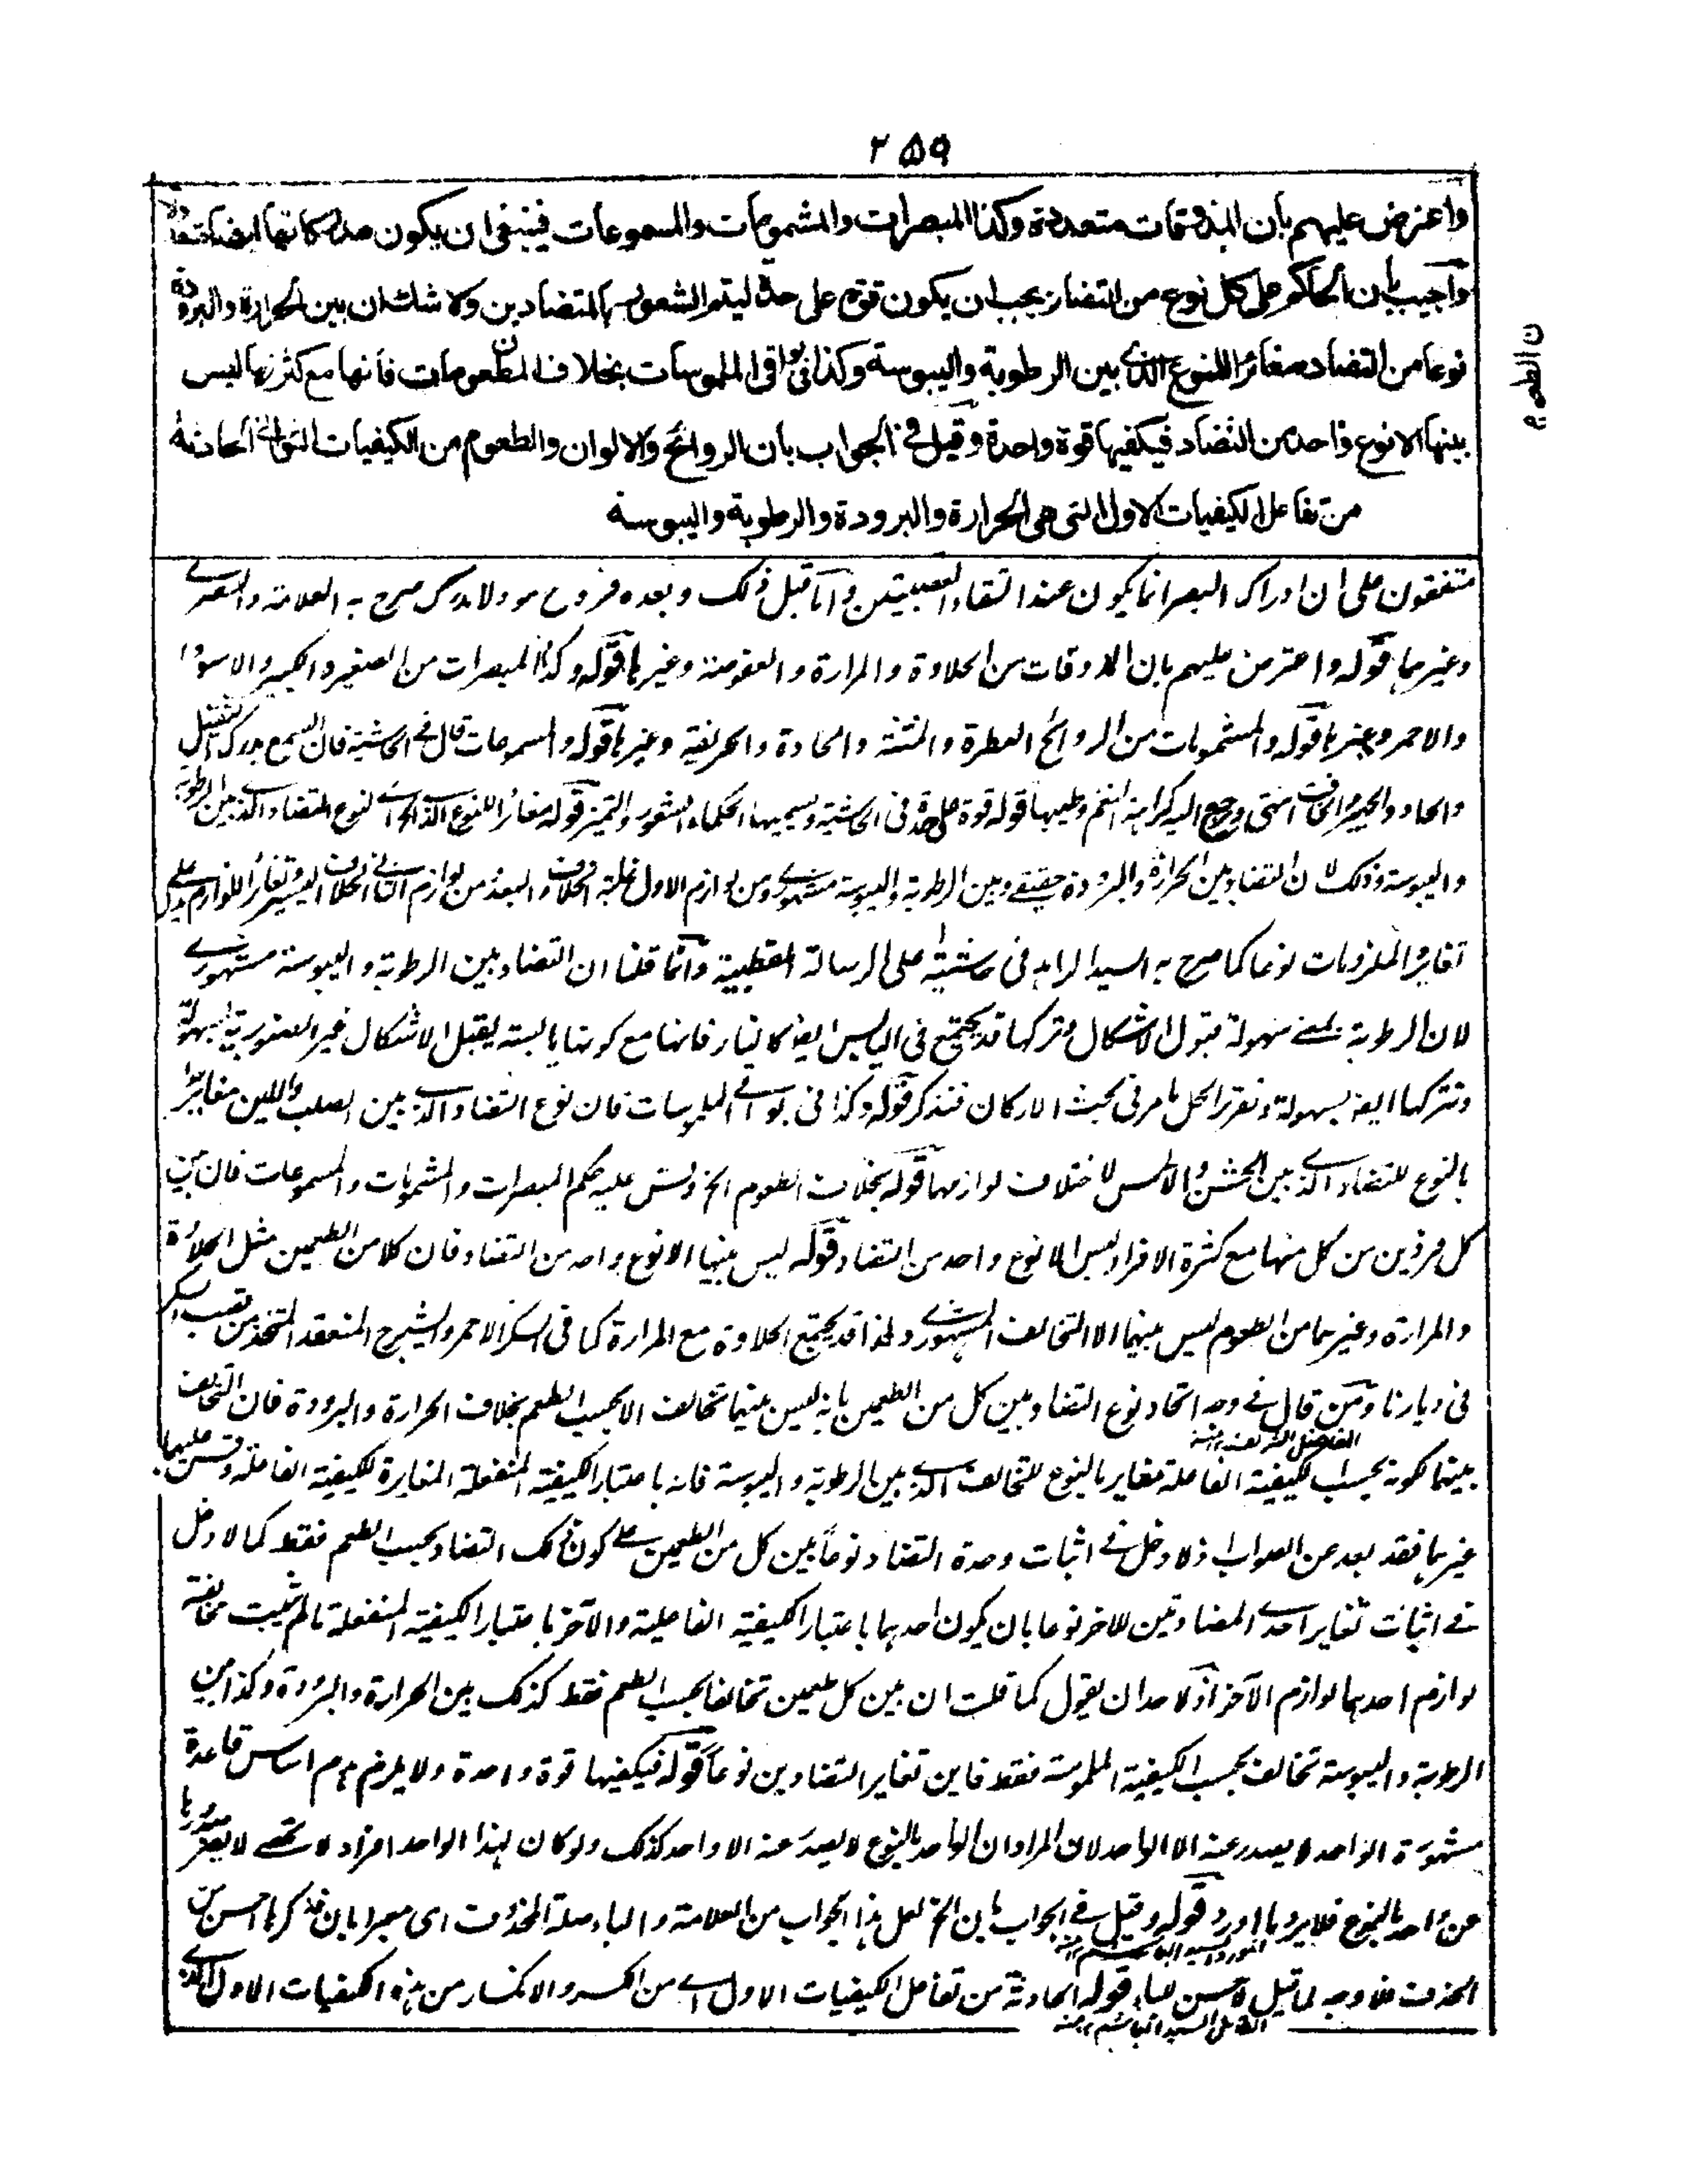 ٢٥٩
واعترض عليهم بأن المذوقات متعددة وكذا المبصرات والمشمومات والمسموعات فينبغى ان يكون مدركاتها ايضا متعددة
واجيب بان الحاكم على كل نوع من التضاد يجب ان يكون قوة على حدة ليتم الشعور بالمتضادين ولا شك ان بين الحرارة والبرودة
نوعا من التضاد مغائرا للنوع الذى بين الرطوبة واليبوسة وكذا فى بواقى الملموسات بخلاف المطعومات فأنها مع كثرتها ليس
ن الطعوم
بينها الا نوع واحد من التضاد فيكفيها قوة واحدة وقيل فى الجواب بأن الروائح والالوان والطعوم من الكيفيات الثوانى الحادثة
من تفاعل الكيفيات الاول التى هى الحرارة والبرودة والرطوبة واليبوسة
متفقون على ان ادراك البصر انما يكون عند التقاء العصبتين واما قبل ذلك وبعده فروح مود لا مدرك صرح به العلامة
وغيرهما قوله واعترض عليهم بان المذوقات من الحلاوة والمرارة والعفوصة وغيرها قوله وكذا المبصرات من الصغير والكبير والاسود
والاحمر وغيرها قوله والمشمومات من الروائح العطرة والمنتنة والحادة والحريفة وغيرها قوله والمسموعات قال فى الحاشية فان السمع يدرك الثقيل
والحاد والجهير والخافت انتهى ويرجع اليه كراهة النغم وطيبها قوله قوة على حدة فى الحاشية ويسميها الحكماء الشعور والتميز قوله مغائرا للنوع الذى الخ اى لنوع التضاد الذى بين الرطوبة
واليبوسة وذلك لان التضاد بين الحرارة والبرودة حقيقى وبين الرطوبة واليبوسة مشهورى ومن لوازم الاول غاية الخلاف والبعد ومن لوازم الثانى الخلاف اليسير وتغائر اللوازم يدل على
تغاير الملزومات نوعا كما صرح به السيد الزاهد فى حاشيته على الرسالة القطبية وانما قلنا ان التضاد بين الرطوبة واليبوسة مشهورى
لان الرطوبة بمعنى سهولة قبول الاشكال وتركها قد يجتمع فى اليابس ايضا كالنار فانها مع كونها يابسة يقبل الاشكال الغير الصنوبرية بسهولة
وتتركها ايضا بسهولة وتقرير الحل ما مر فى بحث الاركان فتذكر قوله وكذا فى بواقى الملموسات فان نوع التضاد الذى بين الصلب واللين مغاير
بالنوع للتضاد الذى بين الخشن والاملس لاختلاف لوازمها قوله بخلاف الطعوم الخ وقس عليه حكم المبصرات والمشمومات والمسموعات فان بين
كل فردين من كل منها مع كثرة الافراد ليس الا نوع واحد من التضاد قوله ليس بينها الا نوع واحد من التضاد فان كلا من الطعمين مثل الحلاوة
والمرارة وغيرهما من الطعوم ليس بينهما الا التخالف المشهورى ولهذا قد يجتمع الحلاوة مع المرارة كما فى السكر الاحمر والشيرج المنعقد المتخذ من قصب السكر
فى ديارنا ومن قال فى وجه اتحاد نوع التضاد بين كل من الطعمين بانه ليس بينهما تخالف الا بحسب الطعم بخلاف الحرارة والبرودة فان التخالف
بينهما لكونه بحسب الكيفية الفاعلة مغاير بالنوع للتخالف الذى بين الرطوبة واليبوسة فانه باعتبار الكيفية المنفعلة المغايرة للكيفية الفاعلة وقس عليهما
غيرهما فقد بعد عن الصواب اذ لا دخل فى اثبات وحدة التضاد نوعاً بين كل من الطعمين على كون ذلك التضاد بحسب الطعم فقط كما لا دخل
فى اثبات تغاير احدى المضادتين للاخر نوعا بان يكون احدهما باعتبار الكيفية الفاعلية والآخر باعتبار الكيفية المنفعلة مالم يثبت مخالفة
لوازم احدهما لوازم الآخر اذ لاحد ان يقول كما قلت ان بين كل طعمين تخالفا بحسب الطعم فقط كذلك بين الحرارة والبرودة وكذا بين
الرطوبة واليبوسة تخالف بحسب الكيفية الملموسة فقط فاين تغاير التضادين نوعاً قوله فيكفيها قوة واحدة ولا يلزم هدم اساس قاعدة
مشهورة الواحد لا يصدر عنه الا الواحد لان المراد ان الواحد بالنوع لا يصدر عنه الا واحد كذلك ولو كان لهذا الواحد افراد لا تحصى لا يضر صدورها
عن واحد بالنوع فلا يرد ما اورد قوله وقيل فى الجواب بان الخ لعل هذا الجواب من العلامة والباء صلة المحذوف اى مجيبا بان فذكرها احسن من
الحذف فلا وجه لما قيل الاحسن الباء قوله الحادثة من تفاعل الكيفيات الاول اى من الكسر والانكسار من هذه الكيفيات الاول